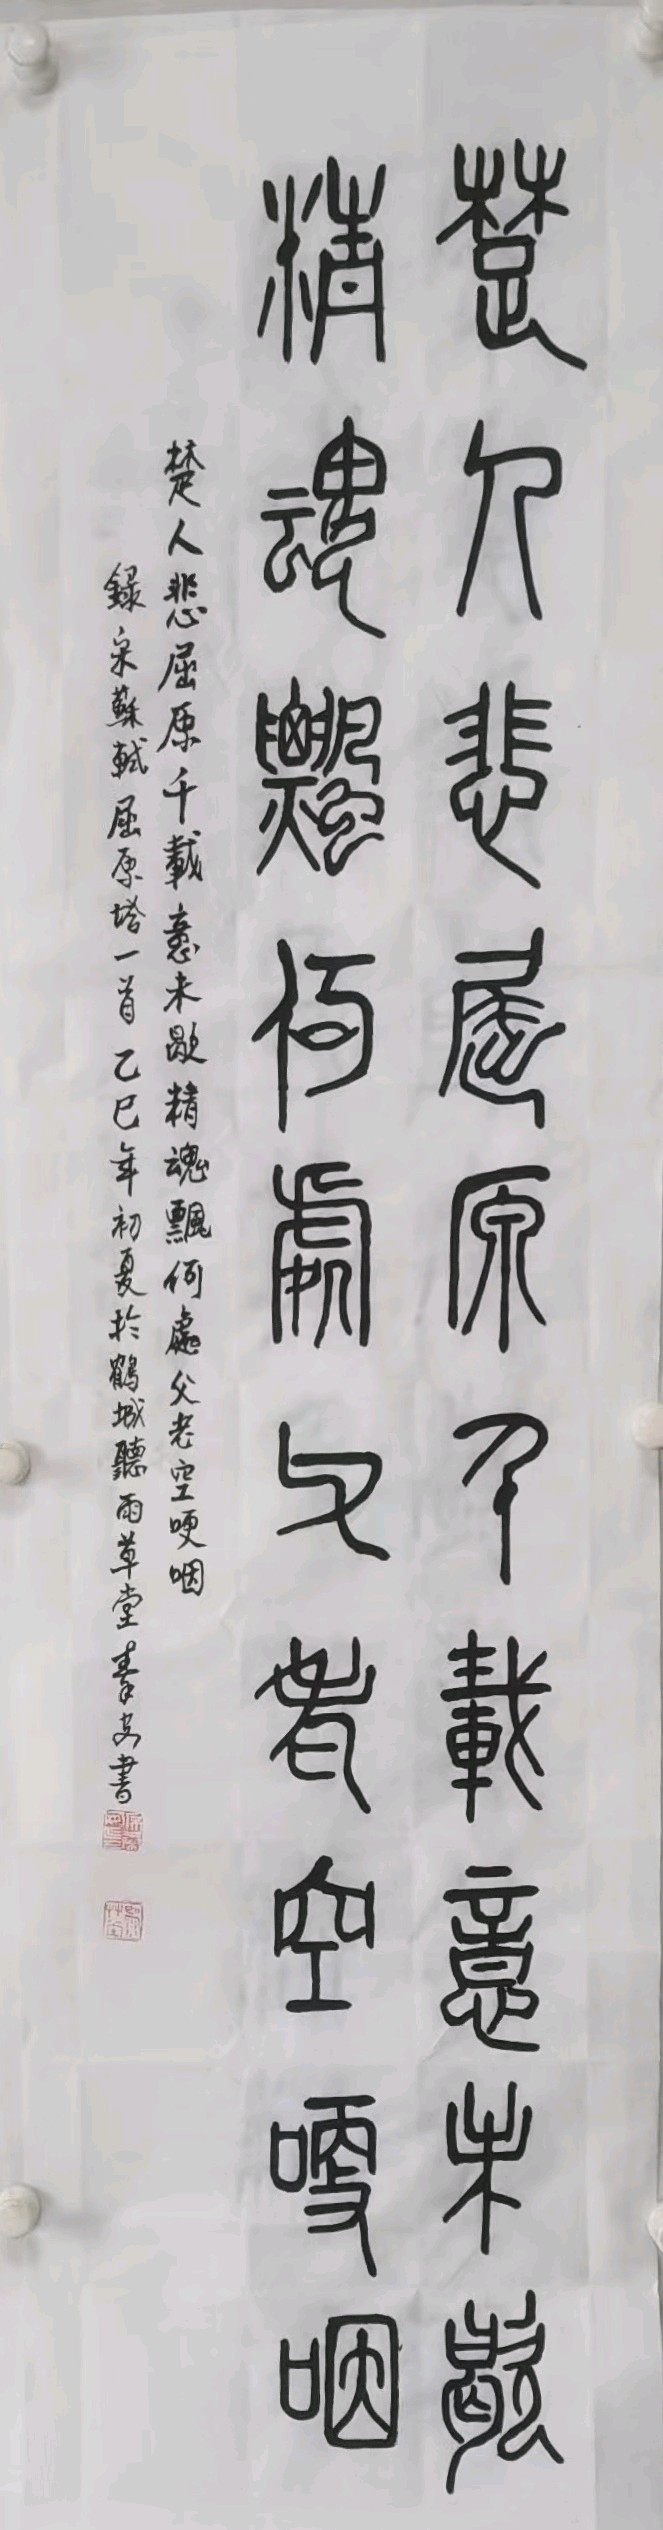 楚人悲屈原千載意未歇
精魂飄何處父老空哽咽
楚人悲屈原千載意未歇精魂飄何處父老空哽咽
錄宋蘇軾屈原塔一首乙巳年初夏於鶴城聽雨草堂秦安書